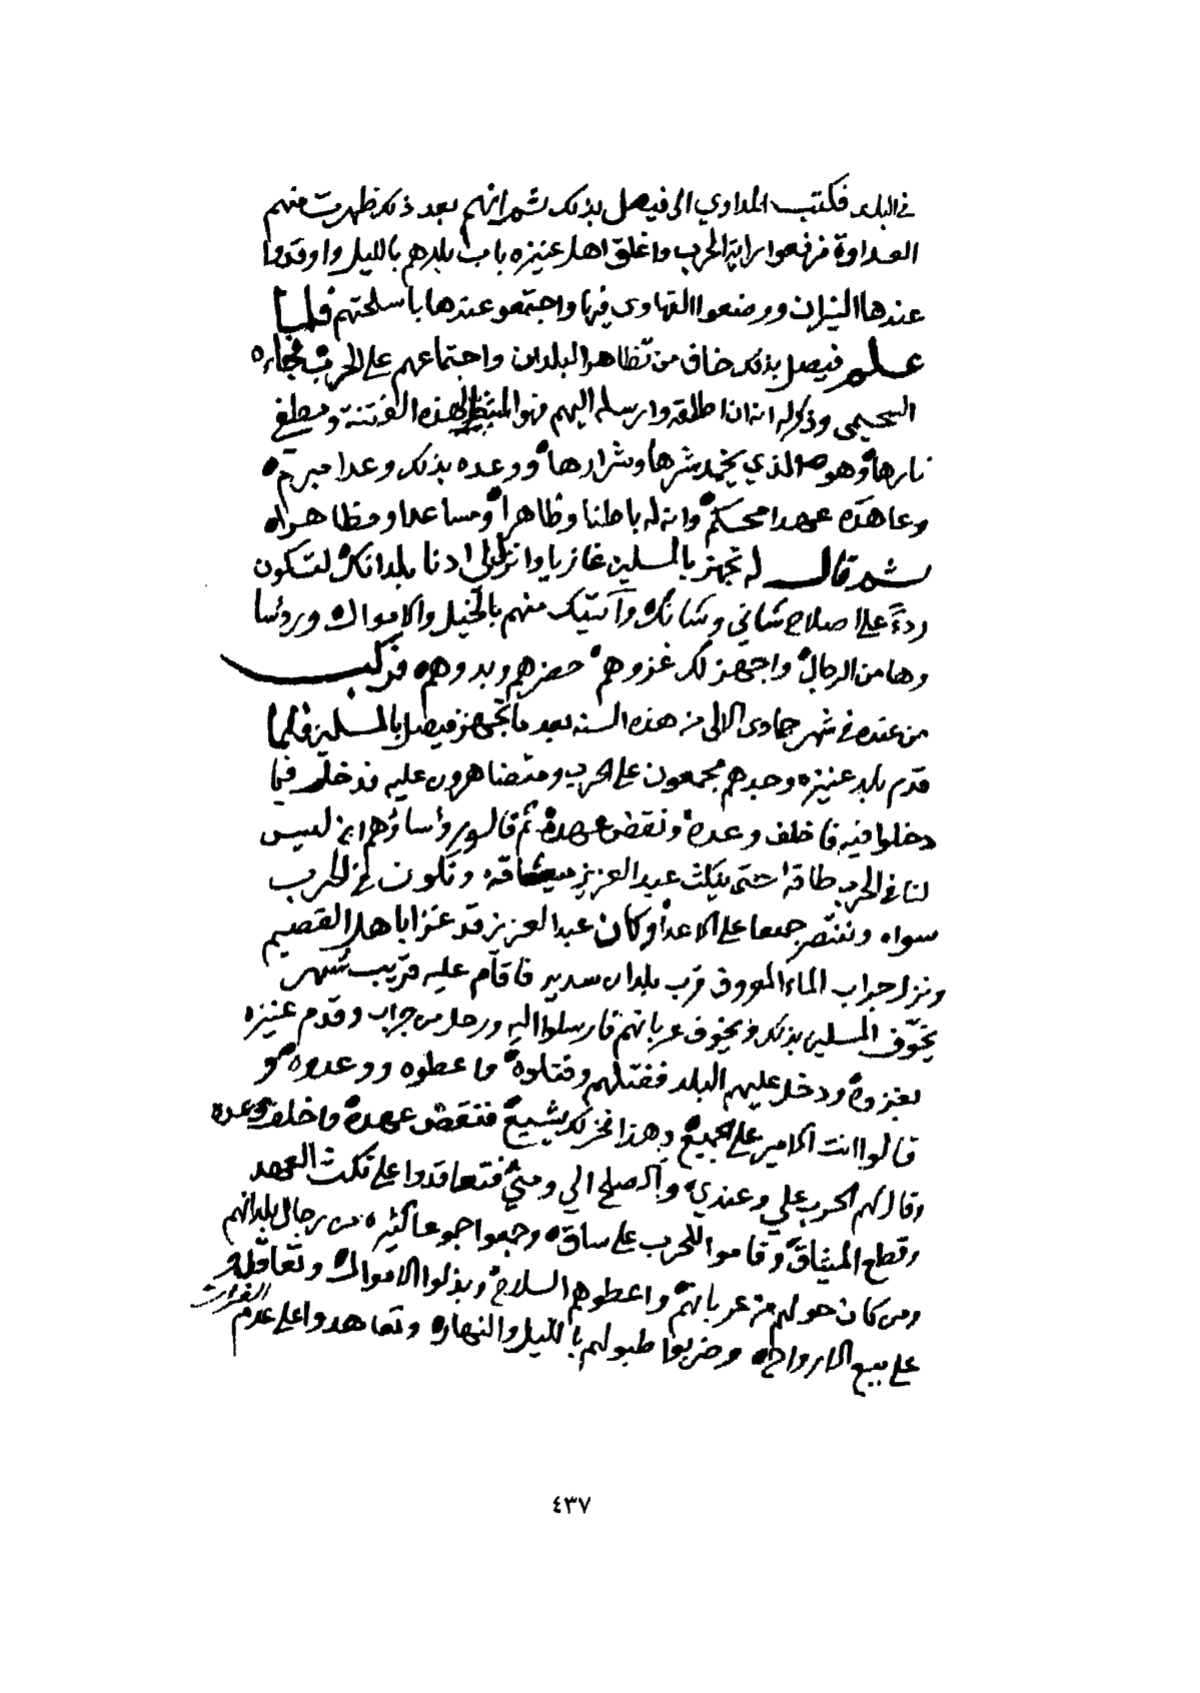 في البلد فكتب المداوي الى فيصل بذلك ثم انهم بعد ذلك ظهرت منهم
العداوة فرفعوا راية الحرب واغلق اهل عنيزه باب بلدهم بالليل واوقدوا
عندها النيران ووضعوا القهاوي فيها واجتمعو عندها باسلحتهم فلما
علم فيصل بذلك خاف من تظاهر البلدان واجتماعهم على الحرب فجاءه
السحيمي وذكر له انه ان اطلقه وارسله اليهم فهو المثبط لهذه الفتنة ومطفي
نارها وهو الذي يخمد شرها وشرارها ووعده بذلك وعدا مبرم
وعاهده عهدا محكم وانه له باطنا وظاهرا ومساعدا ومظاهرا
ثم قال له تجهز بالمسلمين غازيا وانزل ادنا بلدانك لتكون
ردءً على اصلاح شاني وشانك وآتيك منهم بالخيل والاموال ورؤسا
وها من الرجال واجهز لك غزوهم حضرهم وبدوهم فركب
من عنده في شهر جمادى الاولى من هذه السنه بعد ما تجهز فيصل بالمسلمين فلما
قدم بلد عنيزه وجدهم مجمعون على الحرب ومتضاهرون عليه فدخل فيما
دخلوا فيه فاخلف وعده ونقض عهده ثم قالو رؤساؤهم انه ليس
لنا في الحرب طاقة حتى ينكث عبد العزيز ميثاقه ونكون في الحرب
سواء وننتصر جمعا على الاعدا وكان عبد العزيز قد غزا باهل القصيم
ونزل جراب الماء المعروف قرب بلدان سدير فاقام عليه قريب شهر
يخوّف المسلمين بذلك ويخوف عربانهم فارسلوا اليه ورحل من جراب وقدم عنيزه
بغزوه ودخل عليهم البلد ففتلهم وفتلوه واعطوه ووعدوه و
قالوا انت الامير على الجميع وهذا نخر لك يشيع فنقض عهده واخلف وعده
وقال لهم الحرب علي وعندي والصلح الي ومني فتعاقدوا على نكث العهد
وقطع الميثاق وقاموا للحرب على ساق وجمعوا جموعا كثيره من رجال بلدانهم
ومن كان حولهم من عربانهم واعطوهم السلاح وبذلوا الاموال وتعاقدو
على بيع الارواح وضربوا طبولهم بالليل والنهار وتعاهدوا على عدم الفرار
٤٣٧